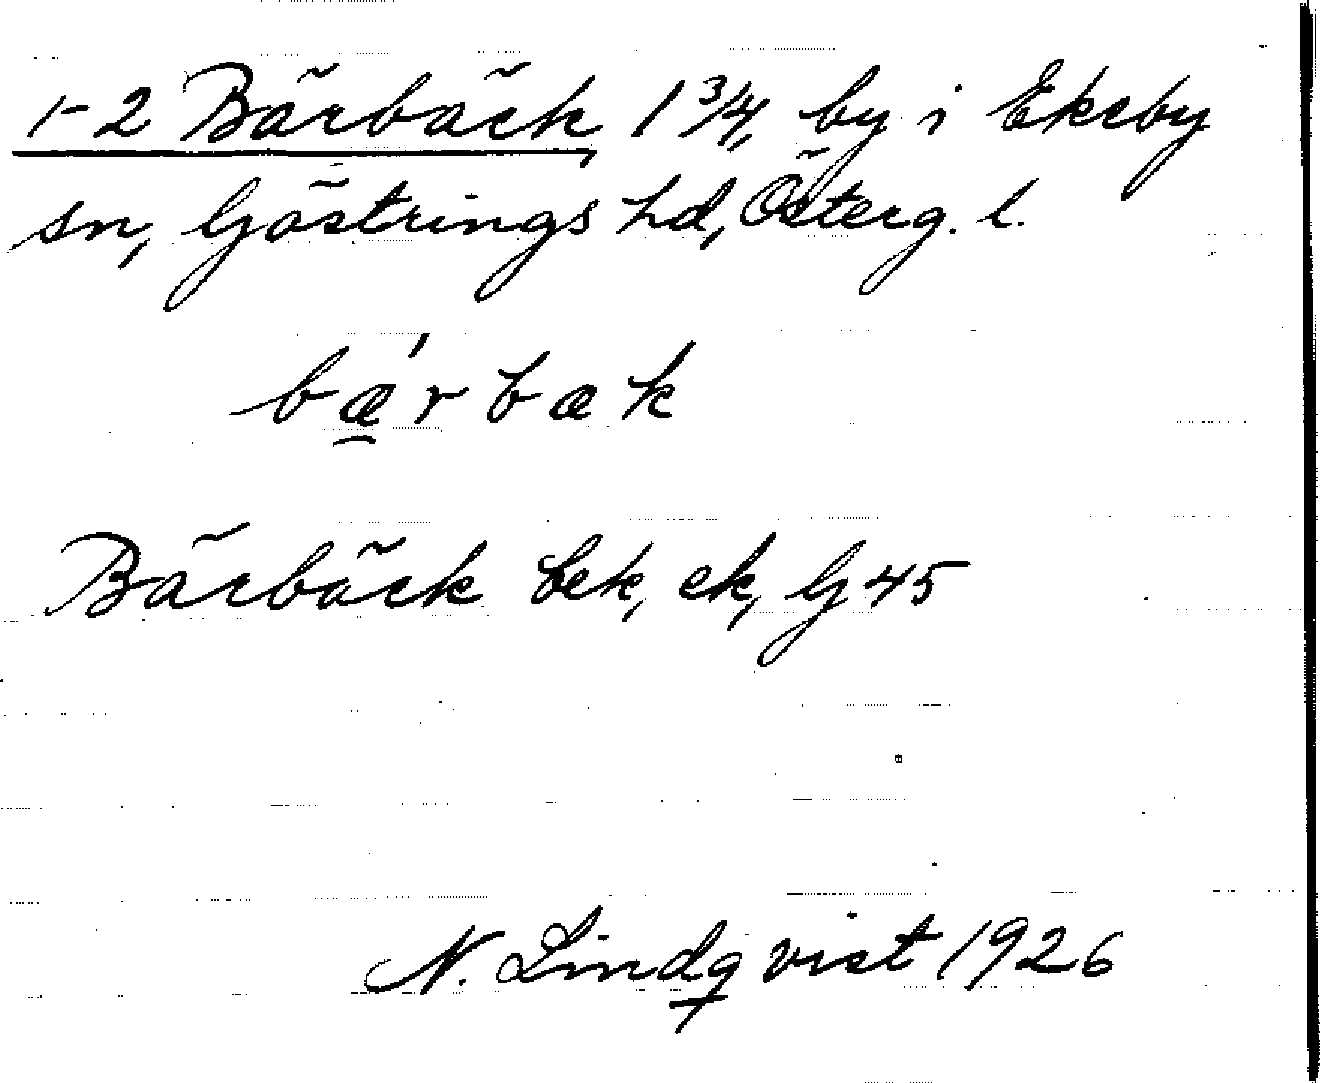 1-2 Bärbäck, 1 3/4, by i Ekeby
sn, Göstrings hd, Österg. l.
bǽ̠rbæk
Bärbäck bek, ek, G 45
N. Lindqvist 1926